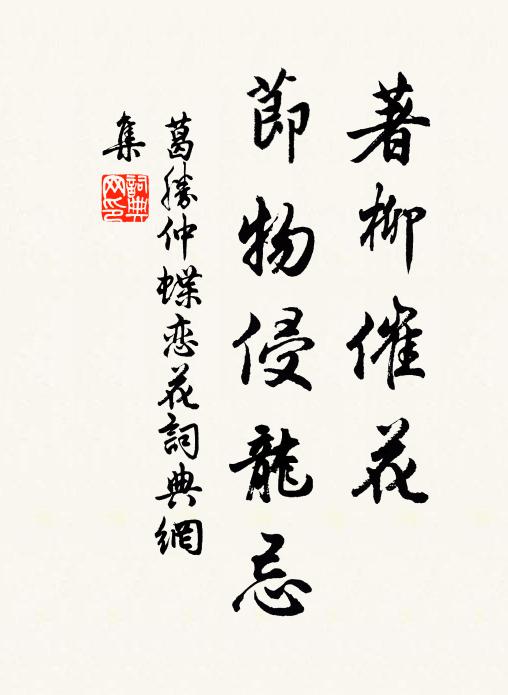 著柳催花
節物侵龍忌
葛勝仲蝶恋花詞典網
集
詞典网印